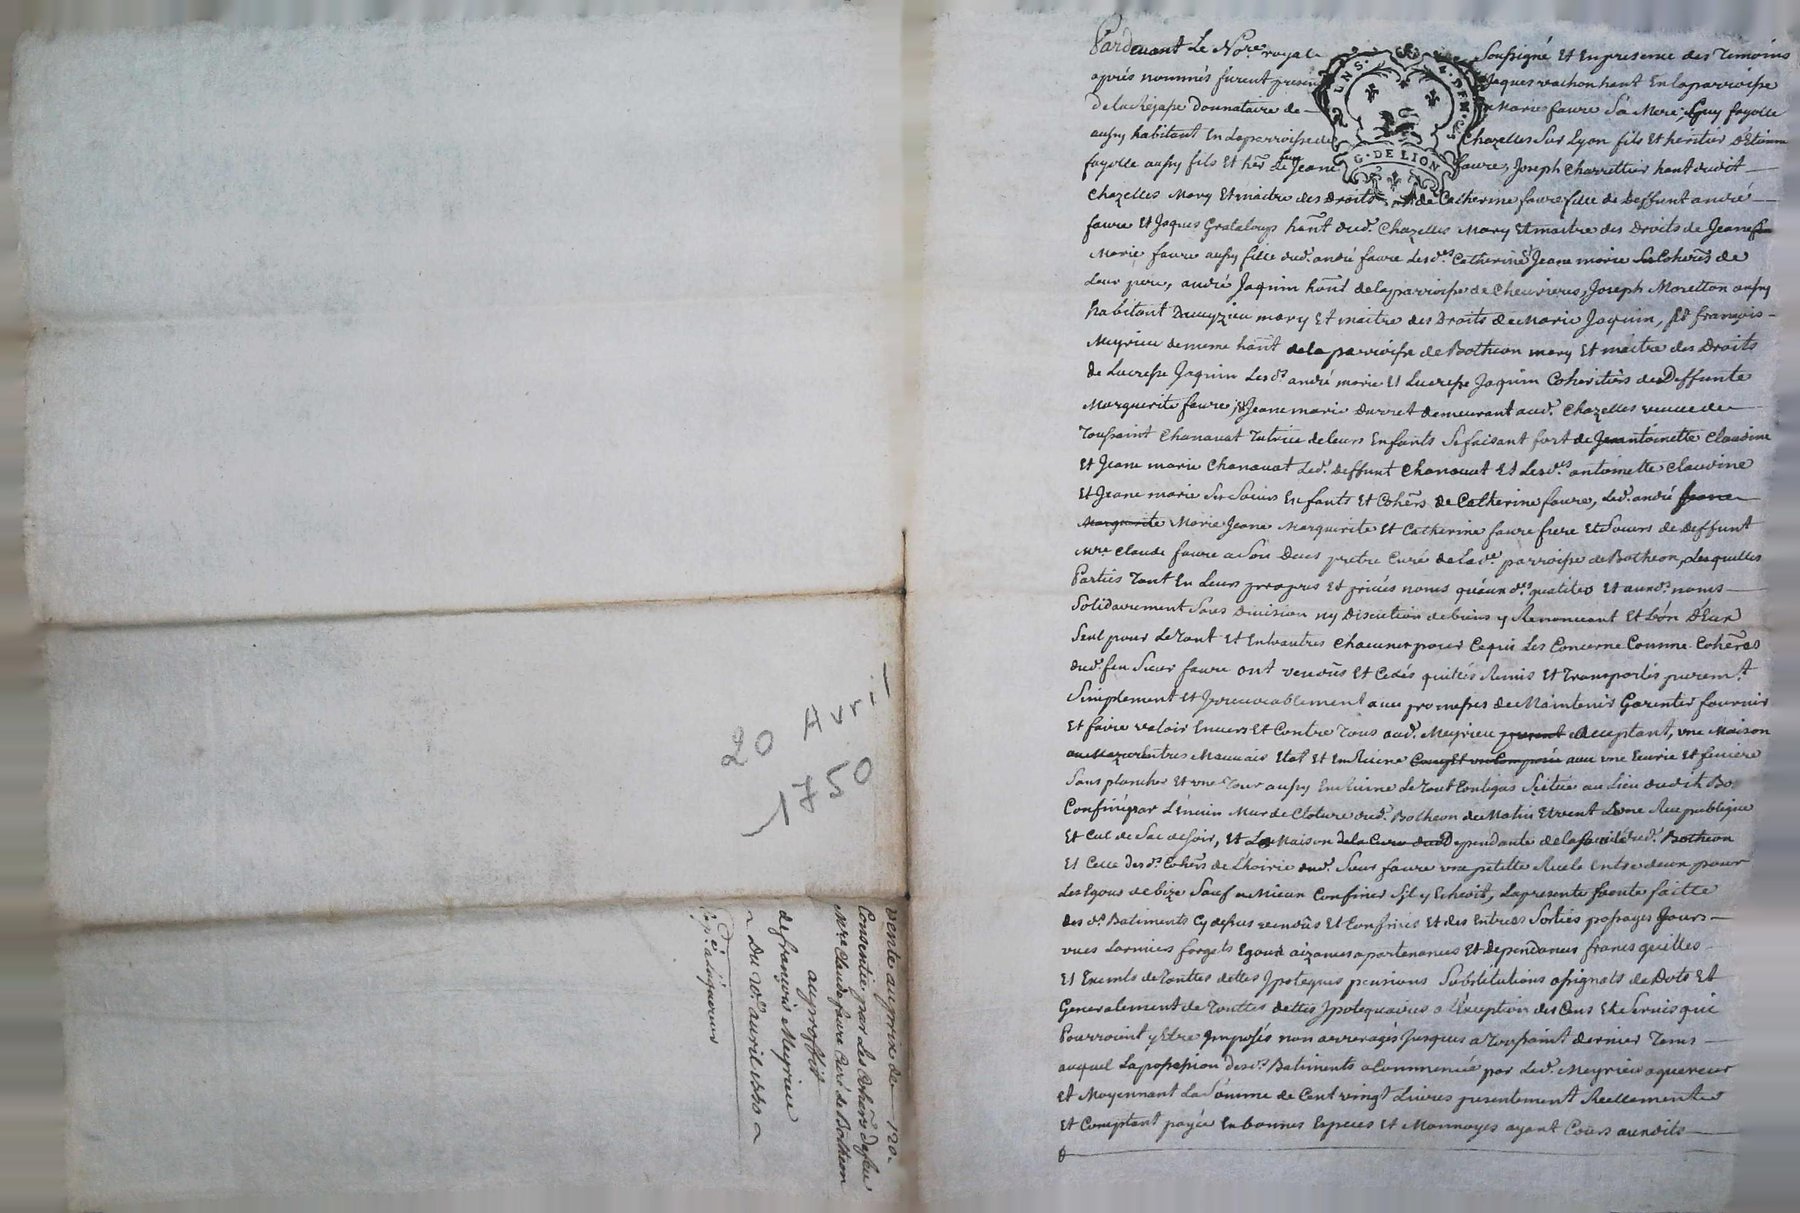 20 Avril
1750
vente au prix de 120
Consentie par Les Cohers de feu
Mre Claude faure Curé de Botheon
au proffit
de françois Meyrieu
Du 20e avril 1750
Par devant Le Nore royal Soussigné Et En presence des Temoins
après nommés furent presents Jaques vachon hant En la parroisse
de La Rajasse Donnataire de Marie faure Sa Mere, Guy fayolle
aussy habitant En La parroisse de Chazelles Sur Lyon fils Et heritier D'Etienne
fayolle aussy fils Et her de Jeane faure, Joseph Charrettier hant dudit
Chazelles Mary Et maitre des Droits de Catherine faure fille de Deffunt andré
faure Et Jaques Grataloup hant dud. Chazelles Mary Et maitre des Droits de Jeane
Marie faure aussy fille dud. andré faure Lesd.es Catherine & Jeane marie Cohers de
Leur pere, andré Jaquim hant de la parroisse de Chevrieres, Joseph Moretton aussy
habitant De veyzieu mary Et maitre des Droits de Marie Jaquim, Et françois
Meyrieu de meme hant de la parroisse de Botheon mary Et maitre des Droits
de Lucresse Jaquim Lesd.s andré marie Et Lucresse Jaquim Coheritiers de Deffunte
Marguerite faure, & Jeane marie Durret demeurant aud. Chazelles veuve de
Toussaint Chanavat Tutrice de leurs Enfants Se faisant fort de antoinette Claudine
Et Jeane marie Chanavat Led. deffunt Chanavat Et Lesd.es antoinette Claudine
Et Jeane marie Ses Soeurs Enfants Et Cohers de Catherine faure, Led. andré Jeane
Marguerite Marie Jeane Marguerite Et Catherine faure frere Et Soeurs de Deffunt
Mre Claude faure a Son Deces pretre Curé de Lad.e parroisse de Botheon, Lesquelles
Parties Tant En Leurs propres Et privés noms qu'aund.s qualités Et aund.s noms
Solidairement Sans Division ny Discution de biens y Renonceant Et L'ún D'Eux
Seul pour Le Tout Et Entr'autres Chacuns pour Ce qui Les Concerne Comme Cohers
dud. feu Sieur faure ont vendûs Et Cedés quittés Remis Et Transportés purem.t
Simplement Et Irrevocablement avec promesses de Maintenir Garentir fournir
Et faire valoir Envers Et Contre Tous aud. Meyrieu present acceptant, une Maison
Mauvais Etat Et En Ruine avec une Ecurie Et feniere
Sans plancher Et une Tour aussy En Ruine Le Tout Contigus Scitué au Lieu dudit Bo
Confiné par L'encien Mur de Cloture dud. Botheon de Matin Et vent Une Rue publique
Et Cul de Sac de Soir, Et La Maison de La Cure Dependante de la dud. Botheon
Et Celle desd.s Cohers de L'hoirie dud. Sieur faure une petitte Ruele Entre deux pour
Les Egous de bize Sauf a Mieux Confiner S'il y Echoit, La presente vente faitte
des d.s Batiments Cy dessus vendûs Et Confinés Et des Entrées Sorties passages Jours
vues Larmiers forgets Egous aizances apartenances Et Dependances francs quittes
Et Exemts de Touttes dettes Ipoteques pensions Substitutions assignats de Dots Et
Generalement de Touttes dettes Ipotequaires a L'Exeption des Cens Et Servis qui
Pourroient y Etre Imposés non arreragés Jusques a Toussaint dernier Tems
auquel La possession desd.s Batiments a Commencée par Led. Meyrieu aquereur
Et Moyennant La Somme de Cent vingt Livres presentement Reellement
Et Comptant payée En bonnes Especes Et Monnoyes ayant Cours
G. DE LION